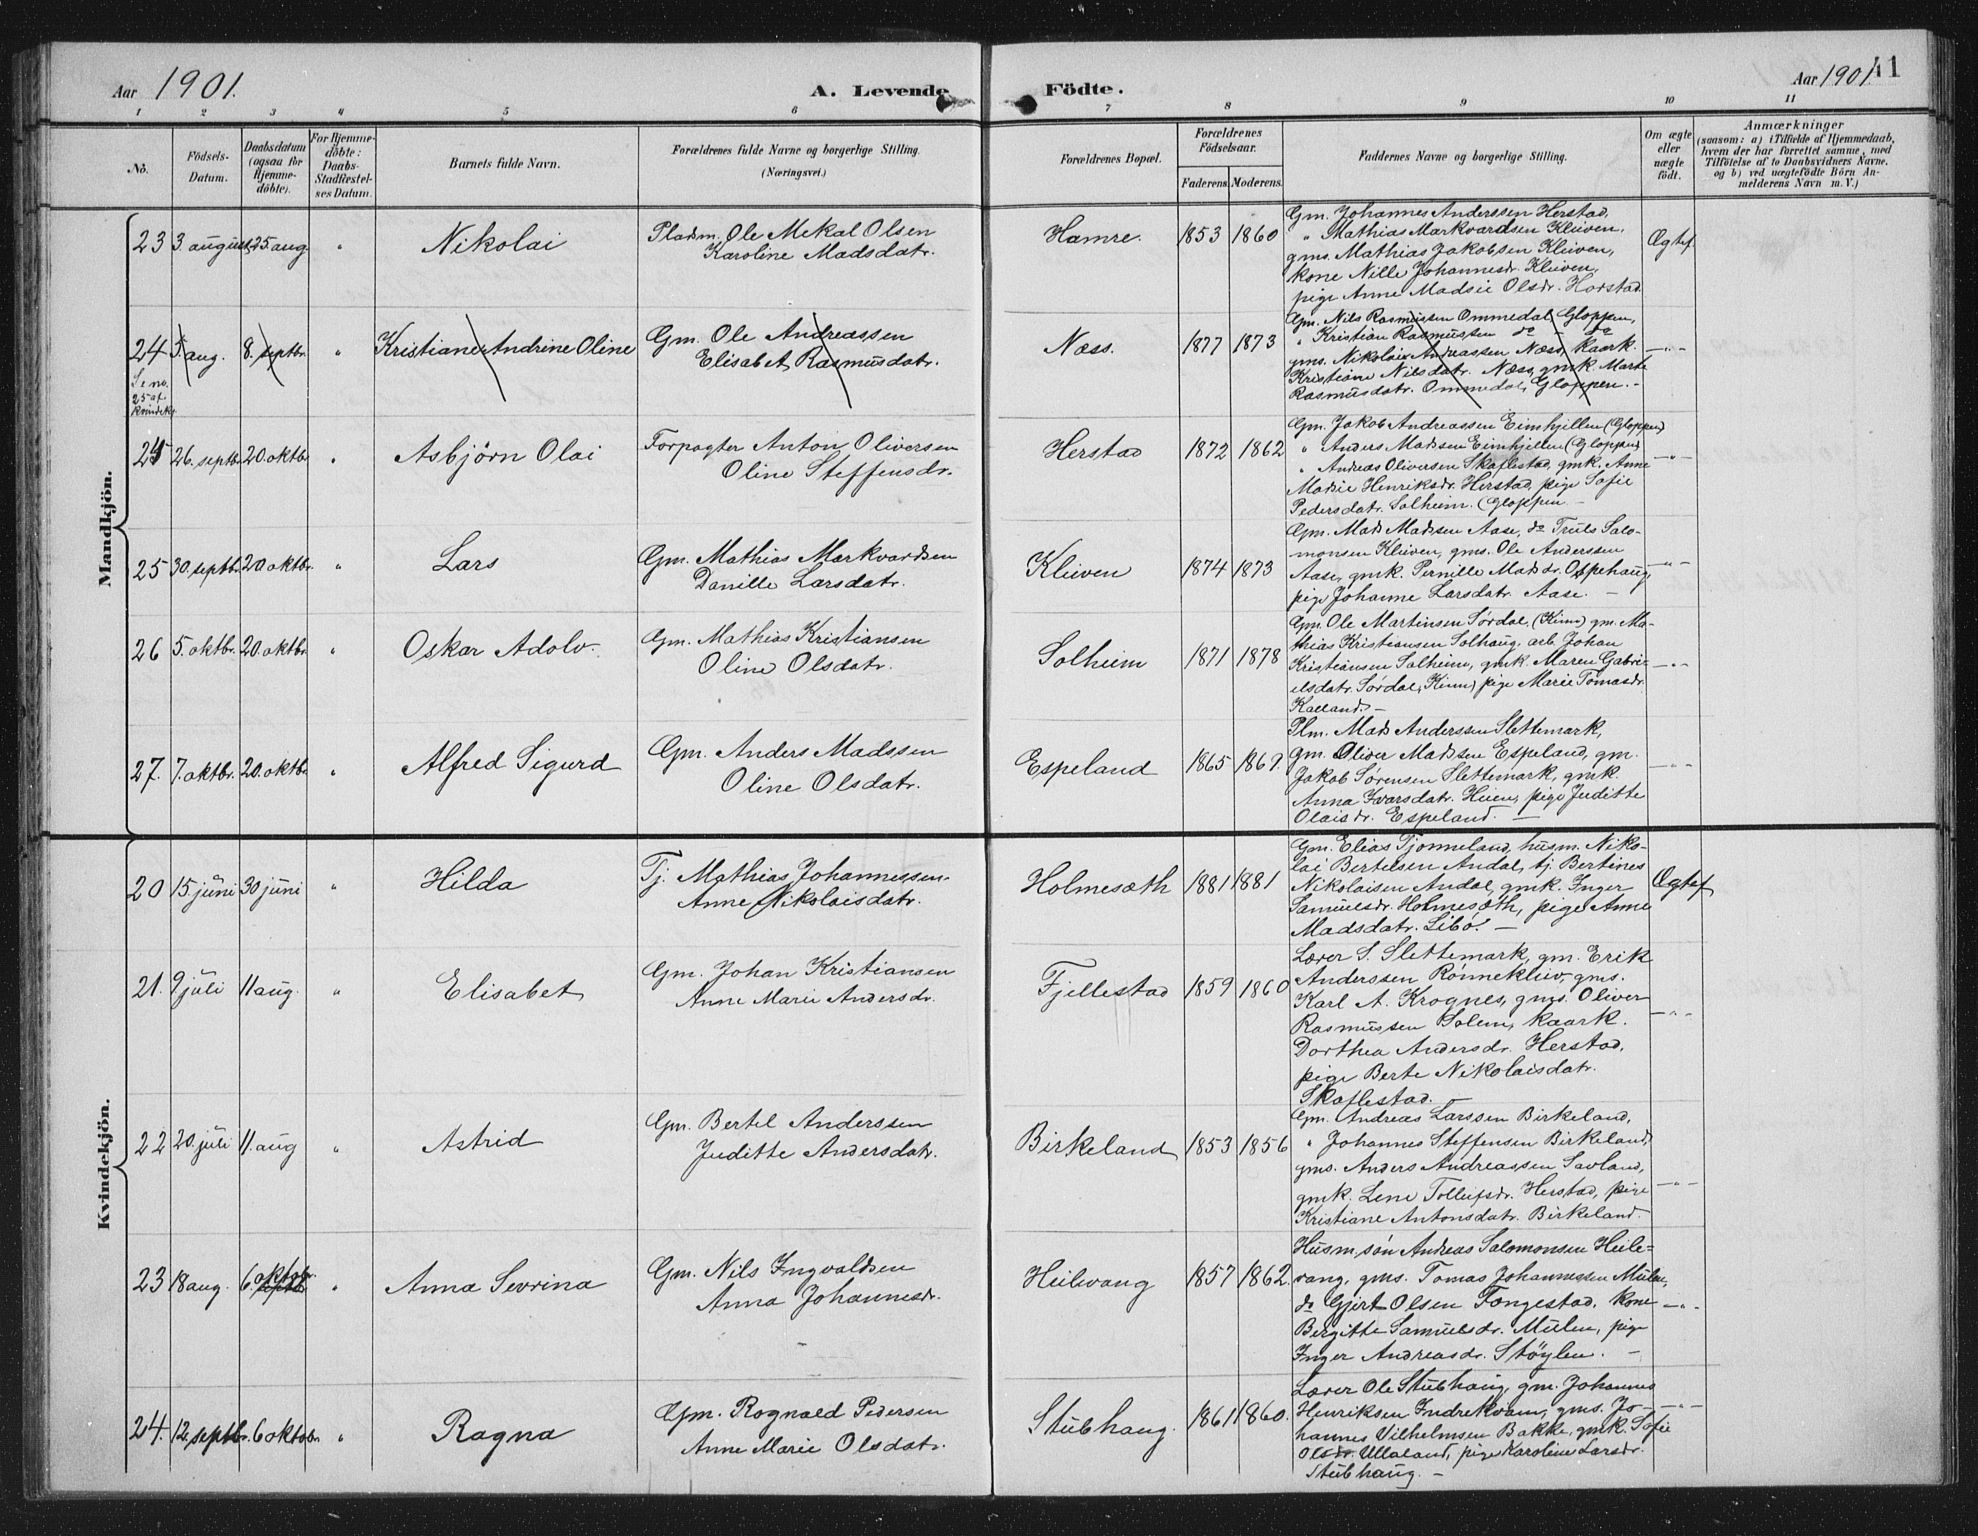 Aar 1901.
A. Levende Födte.
Aar 1901.
41
1 2 3 4 5 6 7 8 9 10 11
No.
Födsels-
Datum.
Daabsdatum
(ogsaa for
Hjemme-
döbte).
For Hjemme-
döbte:
Daabs-
Stadfestel-
ses Datum.
Barnets fulde Navn.
Forældrenes fulde Navne og borgerlige Stilling.
(Næringsvei.)
Forældrenes Bopæl.
Forældrenes
Födselsaar.
Faderens. Moderens.
Faddernes Navne og borgerlige Stilling.
Om ægte
eller
uægte
födt.
Anmærkninger
(saasom: a) i Tilfælde af Hjemmedaab,
hvem der har forrettet samme, med
Tilföielse af to Daabsvidners Navne,
og b) ved uægtefödte Börn An-
melderens Navn m. V.)
Mandkjön.
23 3 august 25 aug. " Nikolai
Pladsm. Ole Mekal Olsen
Karoline Madsdatr.
Hamre. 1853 1860
Gm. Johannes Anderssen Herstad,
" Mathias Markvardsen Kleiven,
gms. Mathias Jakobsen Kleiven,
kone Nille Johannesdr. Kleiven,
pige Anne Madsie Olsdr. Horstad
Ægtef
24 5 aug. 8. septbr. " Kristiane Andrine Oline
Se no.
25 af
kvindekj.
Gm. Ole Andreassen
Elisabet Rasmusdatr.
Næss. 1877 1873
Gm. Nils Rasmussen Ommedal, Gloppen,
" Kristian Rasmussen do - do
gms. Nikolai Andreassen Næss, kaark.
Kristiane Nilsdatr. Næss, gmk. Marte
Rasmusdatr. Ommedal, Gloppen. -
- " -
24 26. septbr. 20. oktbr. " Asbjörn Olai
Forpagter Anton Oliversen
Oline Steffensdr.
Herstad 1872 1862
Gm. Jakob Andreassen Eimhjellen (Gloppen)
" Anders Madssen Eimhjellen (Gloppen)
" Andreas Oliversen Skaflestad, gmk. Anne
Madsie Henriksdr. Herstad, pige Sofie
Pedersdatr. Solheim. (Gloppen -
- " -
25 30. septbr. 20 oktbr. " Lars
Gm. Mathias Markvardsen
Danille Larsdatr.
Kleiven 1874 1873
Gm. Mads Madsen Aase, do Truls Salo-
monsen Kleiven, gms. Ole Anderssen
Aase, gmk. Pernille Madsdr. Oppehaug,
pige Johanne Larsdatr. Aase. -
- " -
26 5. oktbr. 20. oktbr. " Oskar Adolv.
Gm. Mathias Kristiansen
Oline Olsdatr.
Solheim 1871 1878
Gm. Ole Martinsen Sørdal, (Kinn) gm. Ma-
thias Kristiansen Solhaug, arb. Johan
Kristiansen Solheim, gmk. Maren Gabri-
elsdatr. Sørdal, (Kinn) pige Marie Tomasdr.
Kalland. -
- " -
27. 7. oktbr. 20. oktbr. " Alfred Sigurd
Gm. Anders Madssen
Oline Olsdatr.
Espeland 1865 1869
Plm. Mads Anderssen Slettemark,
gm. Oliver Madssen Espeland, gm.
Jakob Sørensen Slettemark, gmk.
Anna Ivarsdatr. Heien, pige Juditte
Olaisdr. Espeland. -
- " -
Kvindekjön.
20 15. juni 30 juni " Hilda
Tj. Mathias Johannessen.
Anne Nikolaisdatr.
Holmesæth 1881 1881
Gm. Elias Tjønneland, husm. Niko-
lai Bertelsen Andal, tj. Bertines
Nikolaisen Andal, gmk. Inger
Samuelsdr. Holmesæth, pige Anne
Madsdatr. Libø. -
Ægtef
21. 9 juli 11 aug. " Elisabet
Gm. Johan Kristiansen
Anne Marie Andersdr.
Fjellestad 1859 1860
Lærer S. Slettemark, gm. Erik
Anderssen Rönnekleiv, gms.
Karl A. Krognes, gms. Oliver
Rasmussen Solem, kaark.
Dorthea Andersdr. Herstad,
pige Berte Nikolaisdatr.
Skaflestad.
- " -
22 20. juli 11. aug " Astrid
Gm. Bertel Anderssen
Juditte Andersdatr.
Birkeland 1853 1856
Gm. Andreas Larssen Birkeland,
" Johannes Steffensen Birkeland,
gms. Anders Andreassen Savland,
gmk. Lene Tollefsdr. Herstad, pige
Kristiane Antonsdatr. Birkeland.
- " -
23 18 aug. 6. oktobr. septbr " Anna Sevrina
Gm. Nils Ingvaldsen
Anna Johannesdr.
Heilevang 1857 1862.
Husm.søn Andreas Salomonsen Heile=
vang, gms. Tomas Johannessen Mulen,
do Gjert Olsen Tongestad, kone
Bergitte Samuelsdr. Mulen, pige
Inger Andreasdr. Støylen. -
- " -
24. 12. septbr. 6 oktobr. " Ragna
Gm. Rognald Pedersen
Anne Marie Olsdatr.
Stubhaug. 1861 1860.
Lærer Ole Stubhaug, gm. Johannes
Henriksen Indrekvam, gms. Jo-
hannes Vilhelmsen Bakke, gmk. Sofie
Olsdr. Ullaland, pige Karoline Larsdr.
Stubhaug. -
- " -